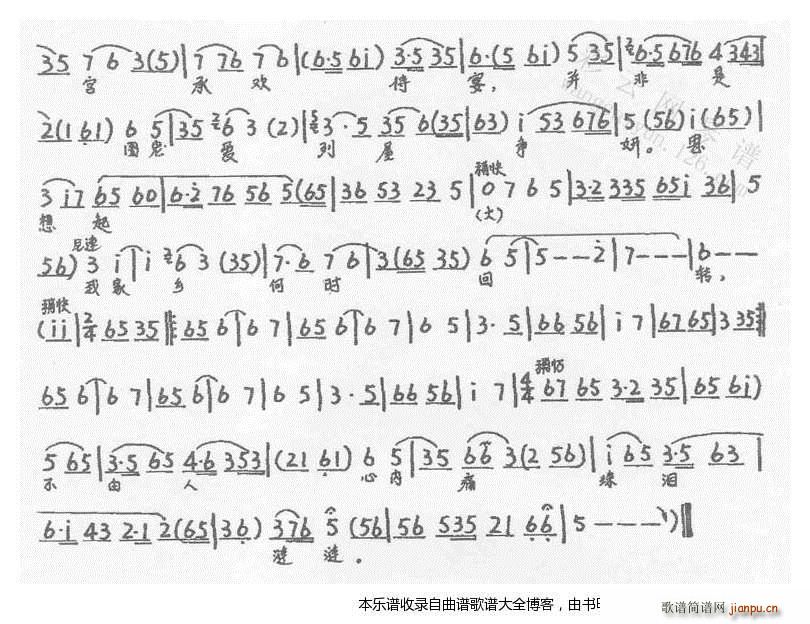 35 7 6 3(5)|7 76 7 6|(6·5 6i)3·5 35|6·(5 6i)5 35|6·5 676 4 343|
宫 承 欢 侍 宴, 并 非 是
2(1 61)6 5|35 6 3(2)|3·5 35 6(35|63)i 53 676|5(56)i(65)|
图恩 爱 列 屋 争 妍。思
3 i7 65 60|6·2 76 56 5(65|36 53 23 5|0 7 6 5|3·2 335 65i 36|5
想 起 稍快 (大)
56)3 i|i 6 3(35)|7·6 7 6|3(65 35)6 5|5--2|7---|6--
尼速 我家 乡 何 时 回 转,
稍快
(ii|2/4 65 35‖:65 6|6 7|65 6|6 7|6 5|3·5|66 56|i 7|67 65|3 35:‖
65 6|6 7|65 6|6 7|6 5|3·5|66 56|i 7|4/4 67 65 3·2 35|65 6i)
5 65|3·5 65 4·6 353|(21 61)6 5|35 66 3(2 56)|i 65 3·5 63|
不 由 人 心内 痛 珠 泪
6·i 43 2·1 2(65|36)376 5(56|56 535 21 66|5---)‖
涟 涟。
本乐谱收录自曲谱歌谱大全博客，由书
歌谱简谱网 jianpu.cn